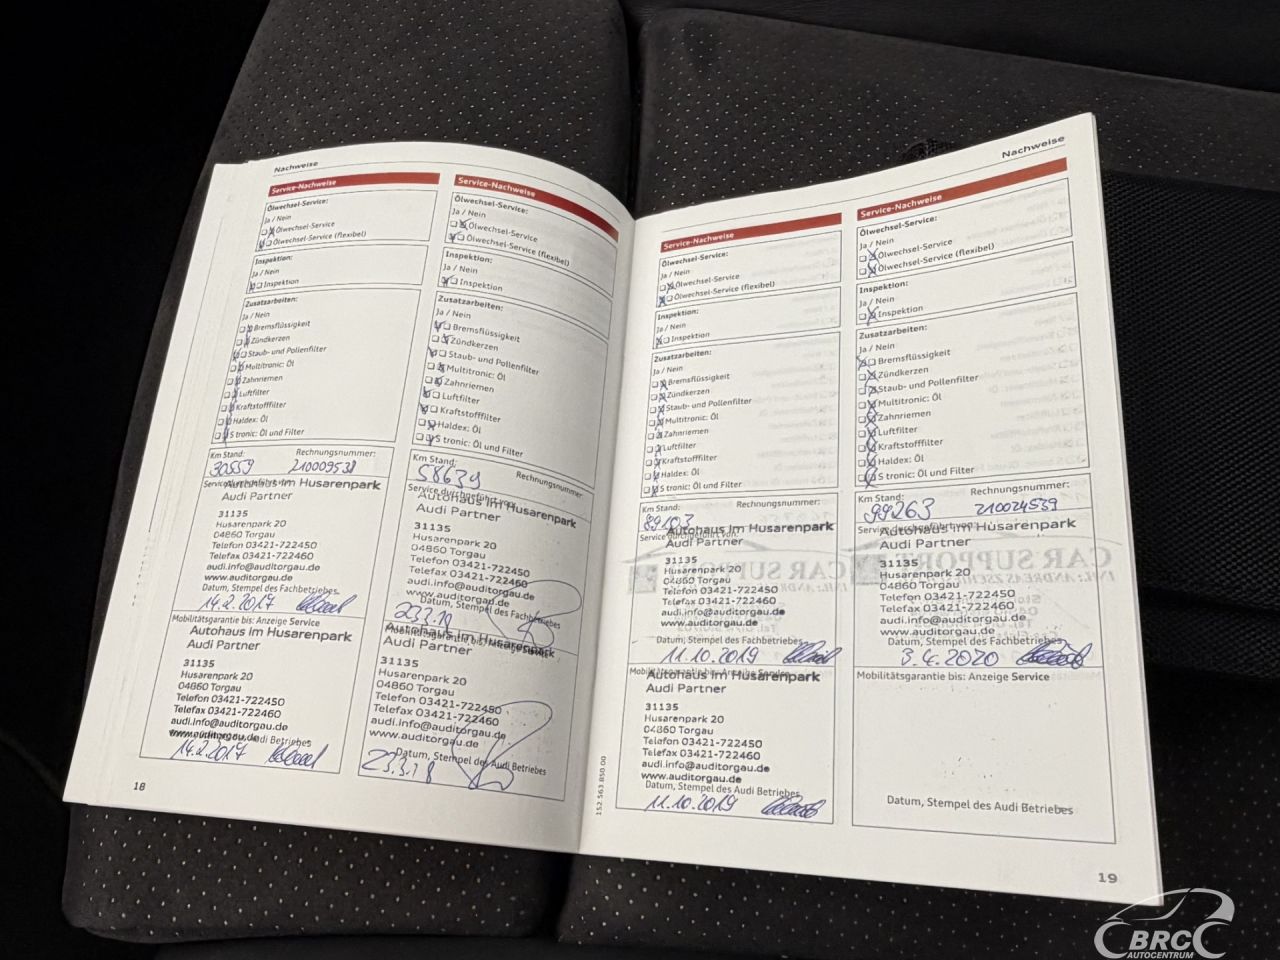 Nachweise
Service-Nachweise
Ölwechsel-Service:
Ja / Nein
Ölwechsel-Service
Ölwechsel-Service (flexibel)
Inspektion:
Ja / Nein
Inspektion
Zusatzarbeiten:
Ja / Nein
Bremsflüssigkeit
Zündkerzen
Staub- und Pollenfilter
Multitronic: Öl
Zahnriemen
Luftfilter
Kraftstofffilter
Haldex: Öl
S tronic: Öl und Filter
Km Stand: Rechnungsnummer:
30559 210009538
Service durchgeführt von:
Autohaus im Husarenpark
Audi Partner
31135
Husarenpark 20
04860 Torgau
Telefon 03421-722450
Telefax 03421-722460
audi.info@auditorgau.de
www.auditorgau.de
Datum, Stempel des Fachbetriebes
14.2.2017
Mobilitätsgarantie bis: Anzeige Service
Autohaus im Husarenpark
Audi Partner
31135
Husarenpark 20
04860 Torgau
Telefon 03421-722450
Telefax 03421-722460
audi.info@auditorgau.de
www.auditorgau.de
Datum, Stempel des Audi Betriebes
14.2.2017
18
Service-Nachweise
Ölwechsel-Service:
Ja / Nein
Ölwechsel-Service
Ölwechsel-Service (flexibel)
Inspektion:
Ja / Nein
Inspektion
Zusatzarbeiten:
Ja / Nein
Bremsflüssigkeit
Zündkerzen
Staub- und Pollenfilter
Multitronic: Öl
Zahnriemen
Luftfilter
Kraftstofffilter
Haldex: Öl
S tronic: Öl und Filter
Km Stand: Rechnungsnummer:
58639
Service durchgeführt von:
Autohaus im Husarenpark
Audi Partner
31135
Husarenpark 20
04860 Torgau
Telefon 03421-722450
Telefax 03421-722460
audi.info@auditorgau.de
www.auditorgau.de
Datum, Stempel des Fachbetriebes
Mobilitätsgarantie bis: Anzeige Service
Autohaus im Husarenpark
Audi Partner
31135
Husarenpark 20
04860 Torgau
Telefon 03421-722450
Telefax 03421-722460
audi.info@auditorgau.de
www.auditorgau.de
Datum, Stempel des Audi Betriebes
23.3.18
152.563.850.00
Nachweise
Service-Nachweise
Ölwechsel-Service:
Ja / Nein
Ölwechsel-Service
Ölwechsel-Service (flexibel)
Inspektion:
Ja / Nein
Inspektion
Zusatzarbeiten:
Ja / Nein
Bremsflüssigkeit
Zündkerzen
Staub- und Pollenfilter
Multitronic: Öl
Zahnriemen
Luftfilter
Kraftstofffilter
Haldex: Öl
S tronic: Öl und Filter
Km Stand: Rechnungsnummer:
89103
Service durchgeführt von:
Autohaus im Husarenpark
Audi Partner
31135
Husarenpark 20
04860 Torgau
Telefon 03421-722450
Telefax 03421-722460
audi.info@auditorgau.de
www.auditorgau.de
Datum, Stempel des Fachbetriebes
11.10.2019
Mobilitätsgarantie bis: Anzeige Service
Autohaus im Husarenpark
Audi Partner
31135
Husarenpark 20
04860 Torgau
Telefon 03421-722450
Telefax 03421-722460
audi.info@auditorgau.de
www.auditorgau.de
Datum, Stempel des Audi Betriebes
11.10.2019
Service-Nachweise
Ölwechsel-Service:
Ja / Nein
Ölwechsel-Service
Ölwechsel-Service (flexibel)
Inspektion:
Ja / Nein
Inspektion
Zusatzarbeiten:
Ja / Nein
Bremsflüssigkeit
Zündkerzen
Staub- und Pollenfilter
Multitronic: Öl
Zahnriemen
Luftfilter
Kraftstofffilter
Haldex: Öl
S tronic: Öl und Filter
Km Stand: Rechnungsnummer:
99263 210024539
Service durchgeführt von:
Autohaus im Husarenpark
Audi Partner
31135
Husarenpark 20
04860 Torgau
Telefon 03421-722450
Telefax 03421-722460
audi.info@auditorgau.de
www.auditorgau.de
Datum, Stempel des Fachbetriebes
3.4.2020
Mobilitätsgarantie bis: Anzeige Service
Datum, Stempel des Audi Betriebes
19
BRC
AUTOCENTRUM